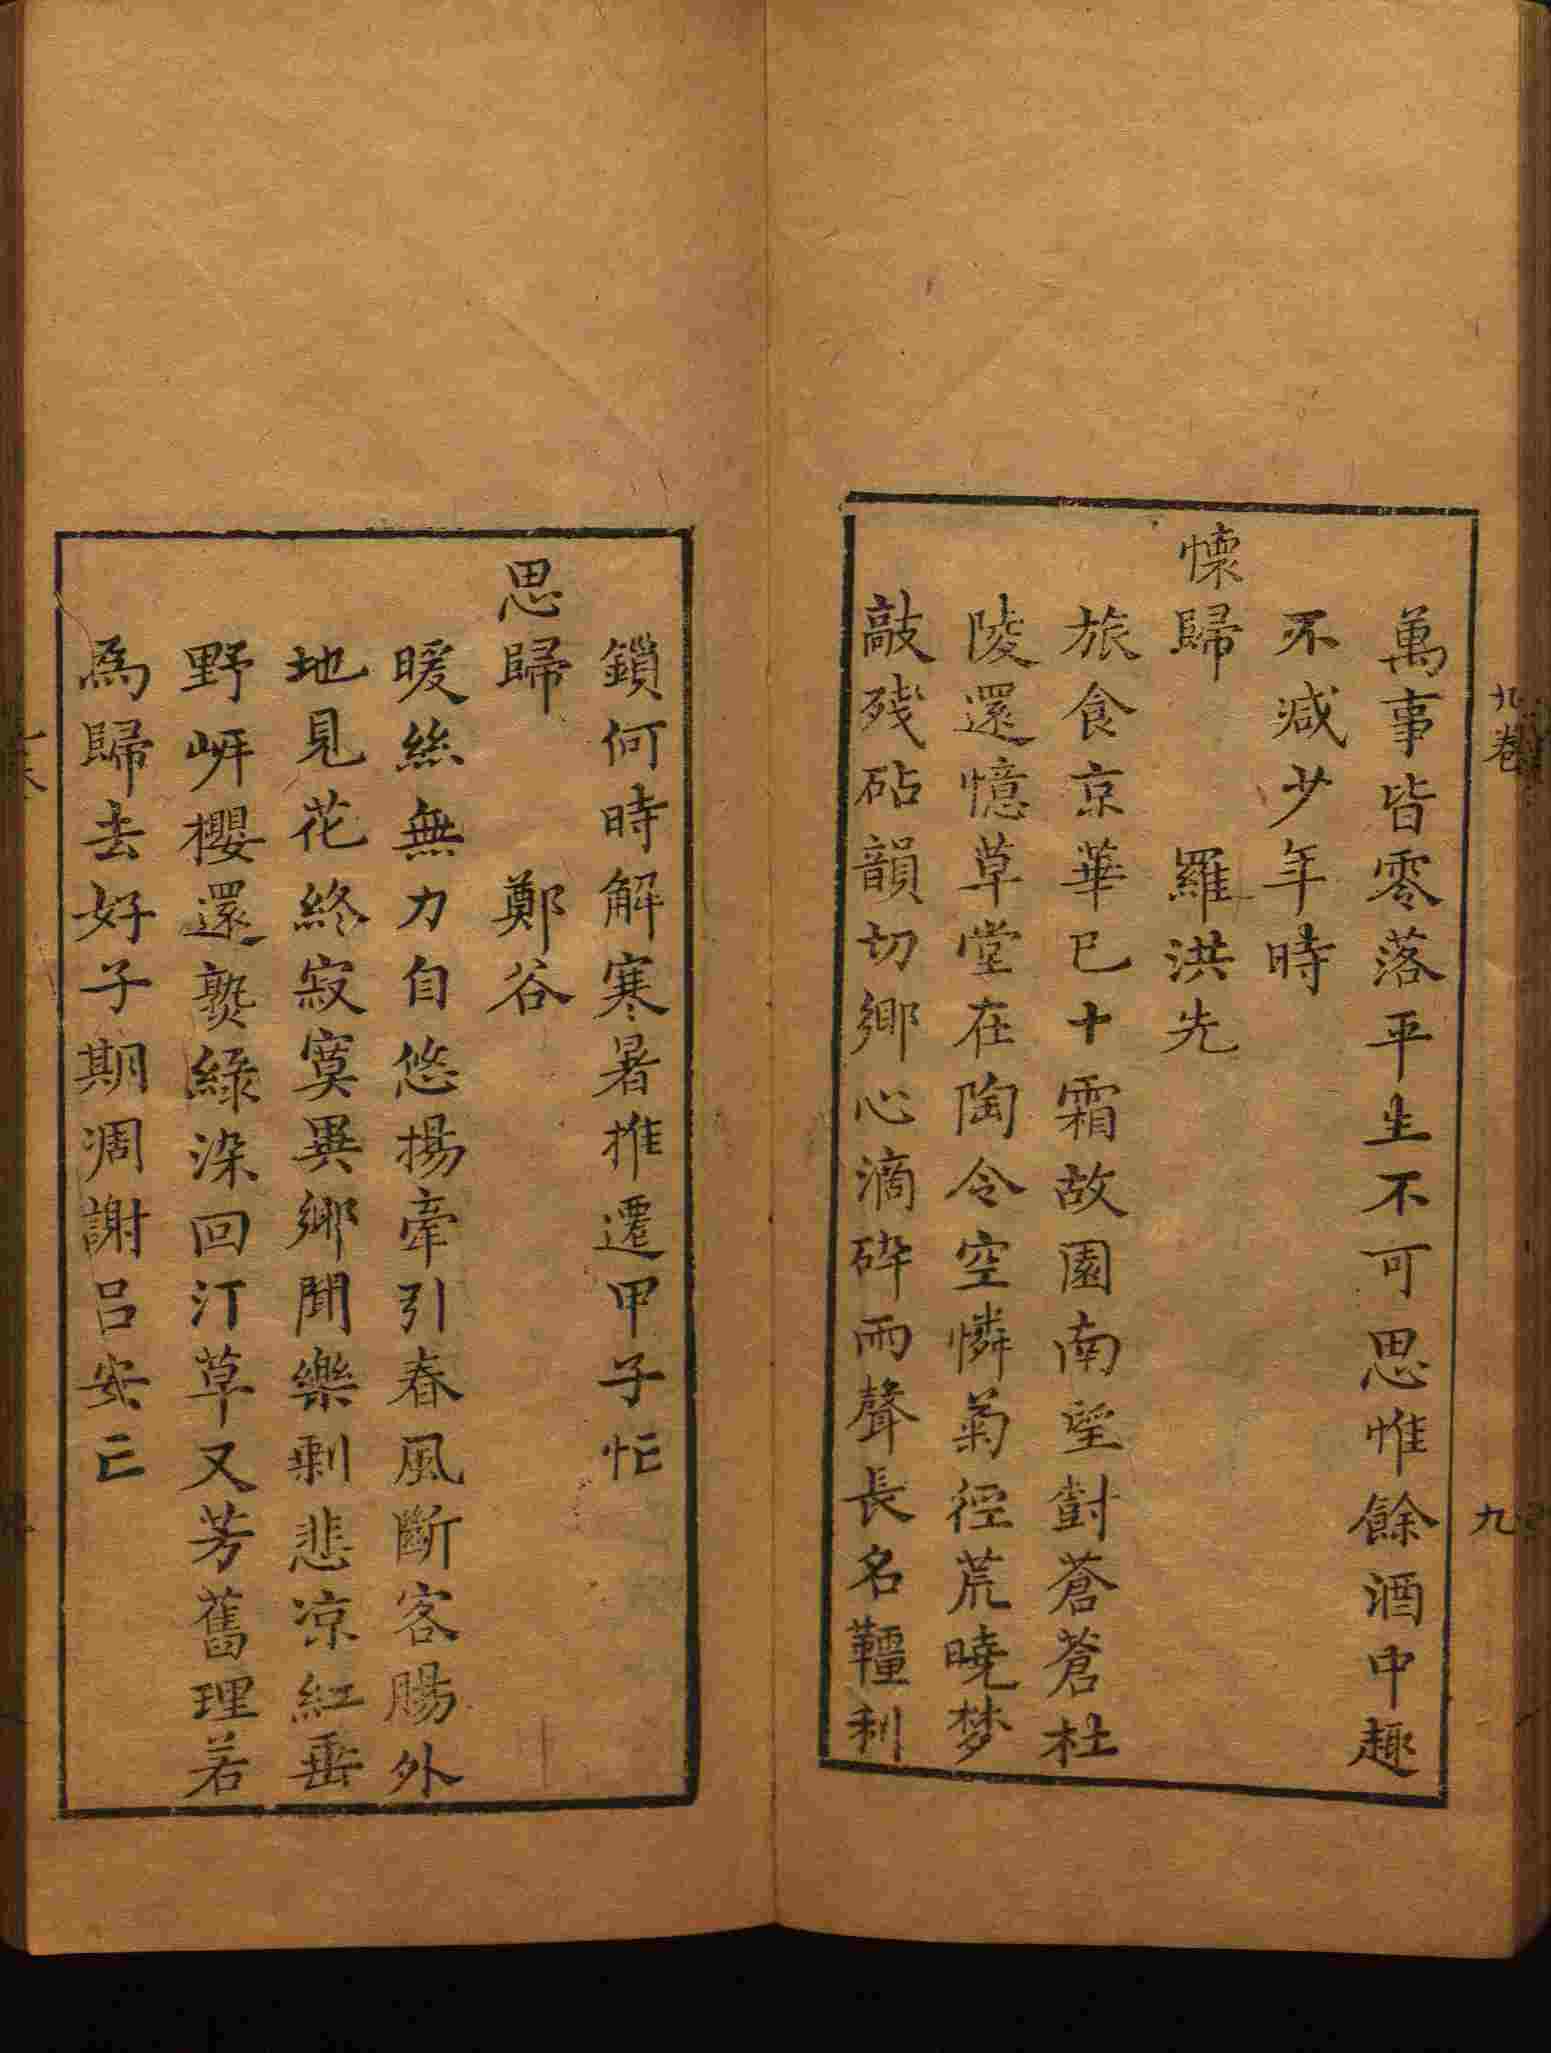 九卷
九
萬事皆零落平生不可思惟餘酒中趣
不減少年時
懷歸　羅洪先
旅食京華已十霜故園南望對蒼蒼杜
陵還憶草堂在陶令空憐菊徑荒曉梦
敲殘砧韻切鄉心滴碎雨聲長名韁利
鎖何時解寒暑推遷甲子忙
思歸　鄭谷
暖絲無力自悠揚牽引春風斷客腸外
地見花終寂寞異鄉聞樂剩悲凉紅垂
野岍櫻還熟綠染回汀草又芳舊理若
為歸去好子期凋謝呂安亡